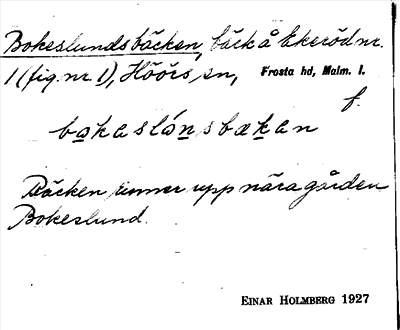 Bokeslundsbäcken, bäck å Ekeröd nr.
1 (fig. nr. 1), Höörs, sn, Frosta hd, Malm. l.
f.
bo̱kaslón̠sbæḵan
Bäcken rinner upp nära gården
Bokeslund.
EINAR HOLMBERG 1927